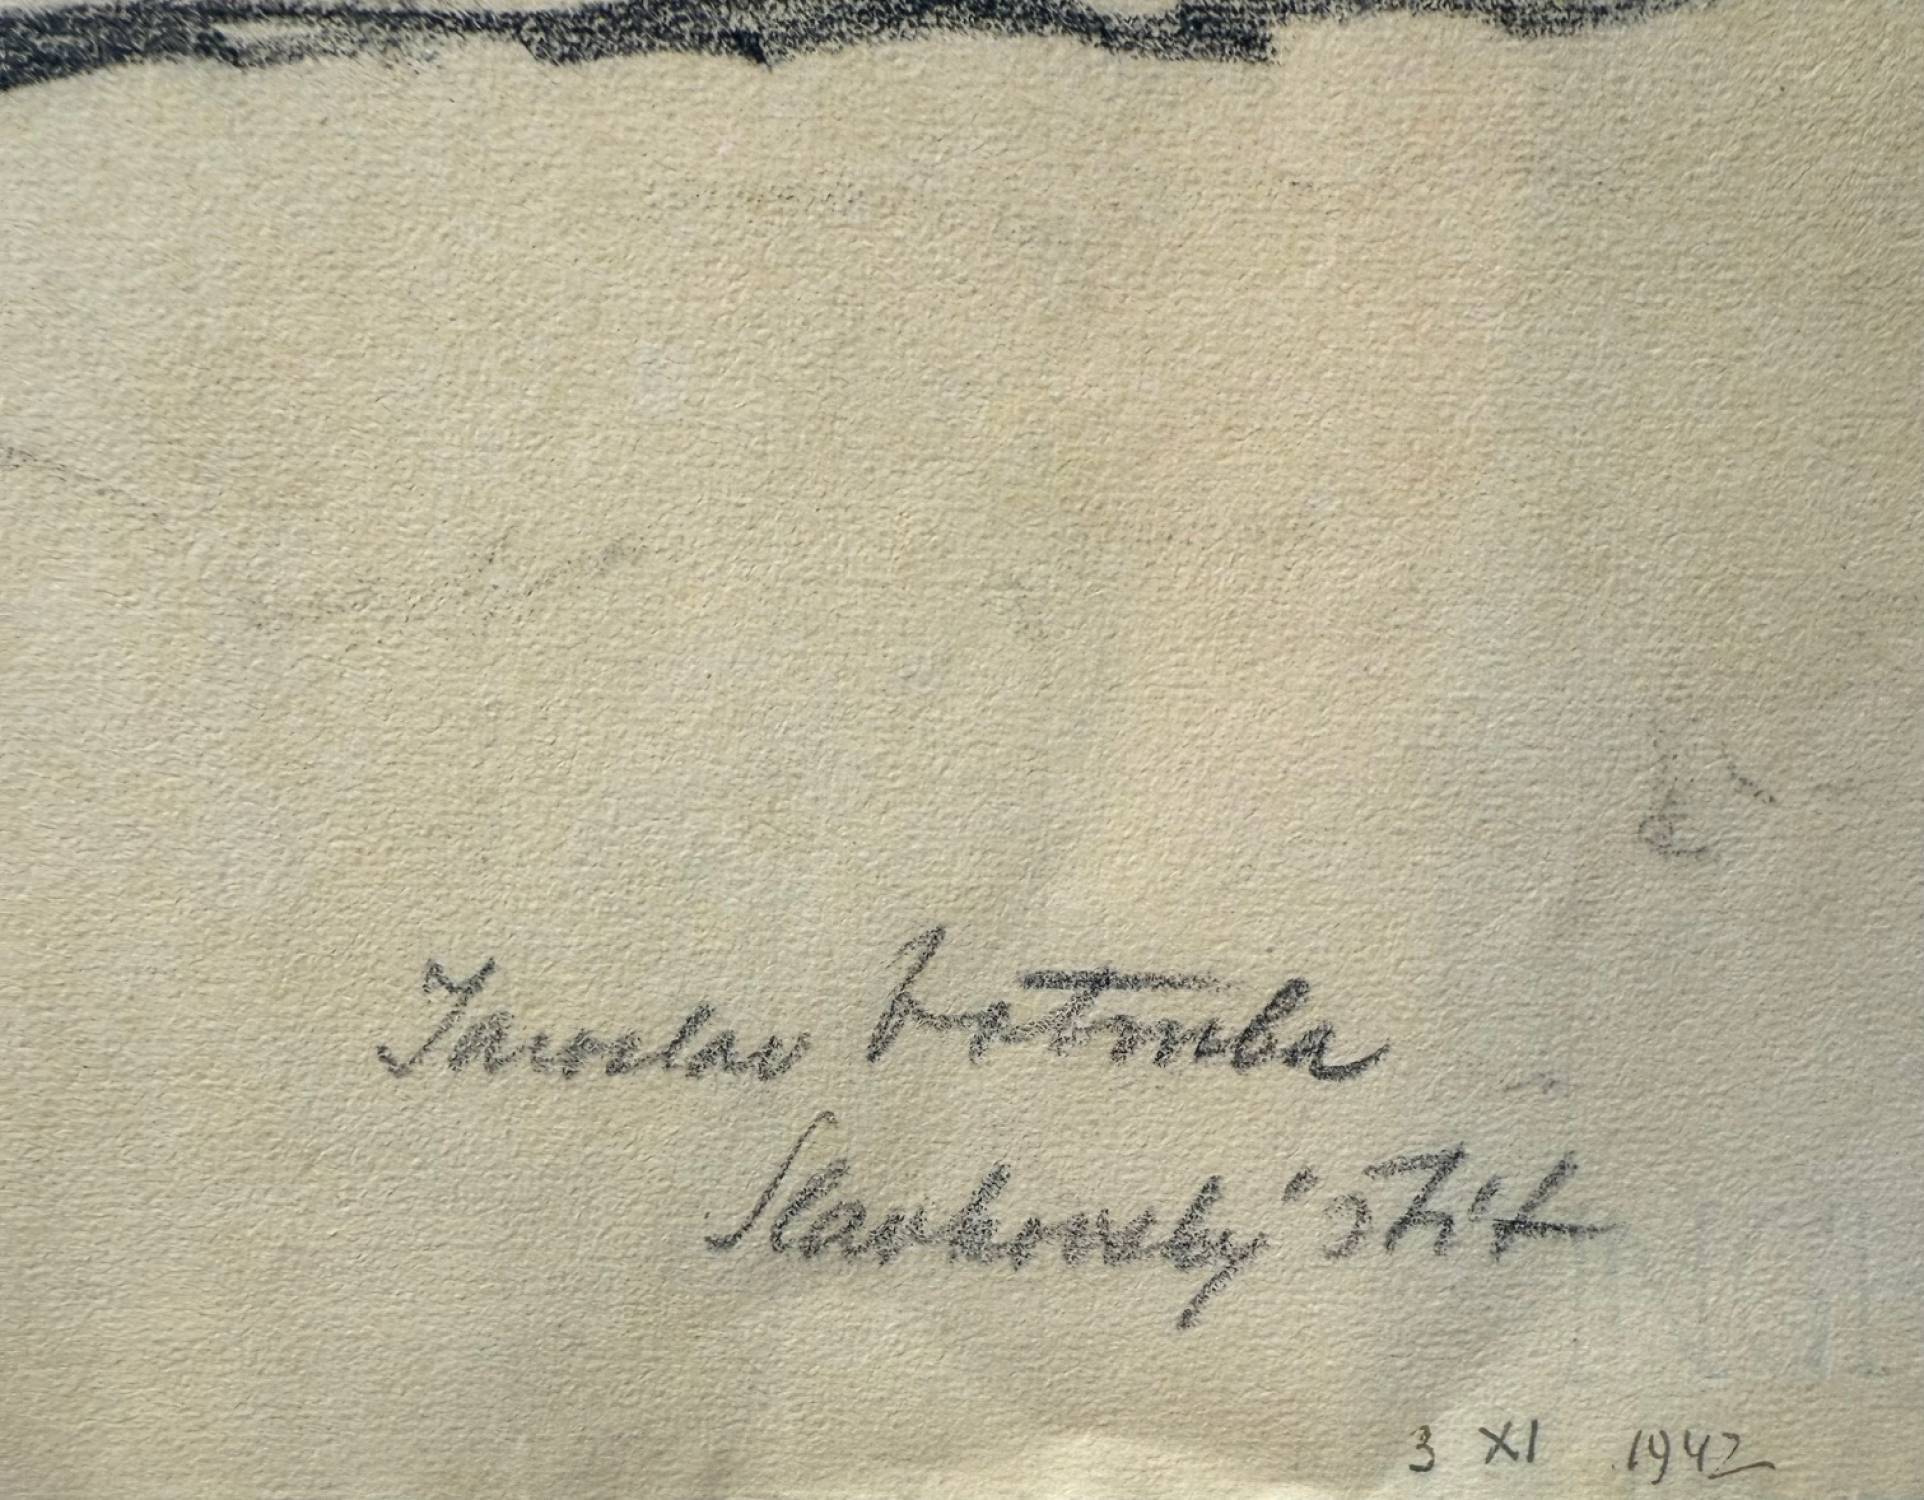 Jaroslav Votruba
Slavkovský štít
3 XI 1942